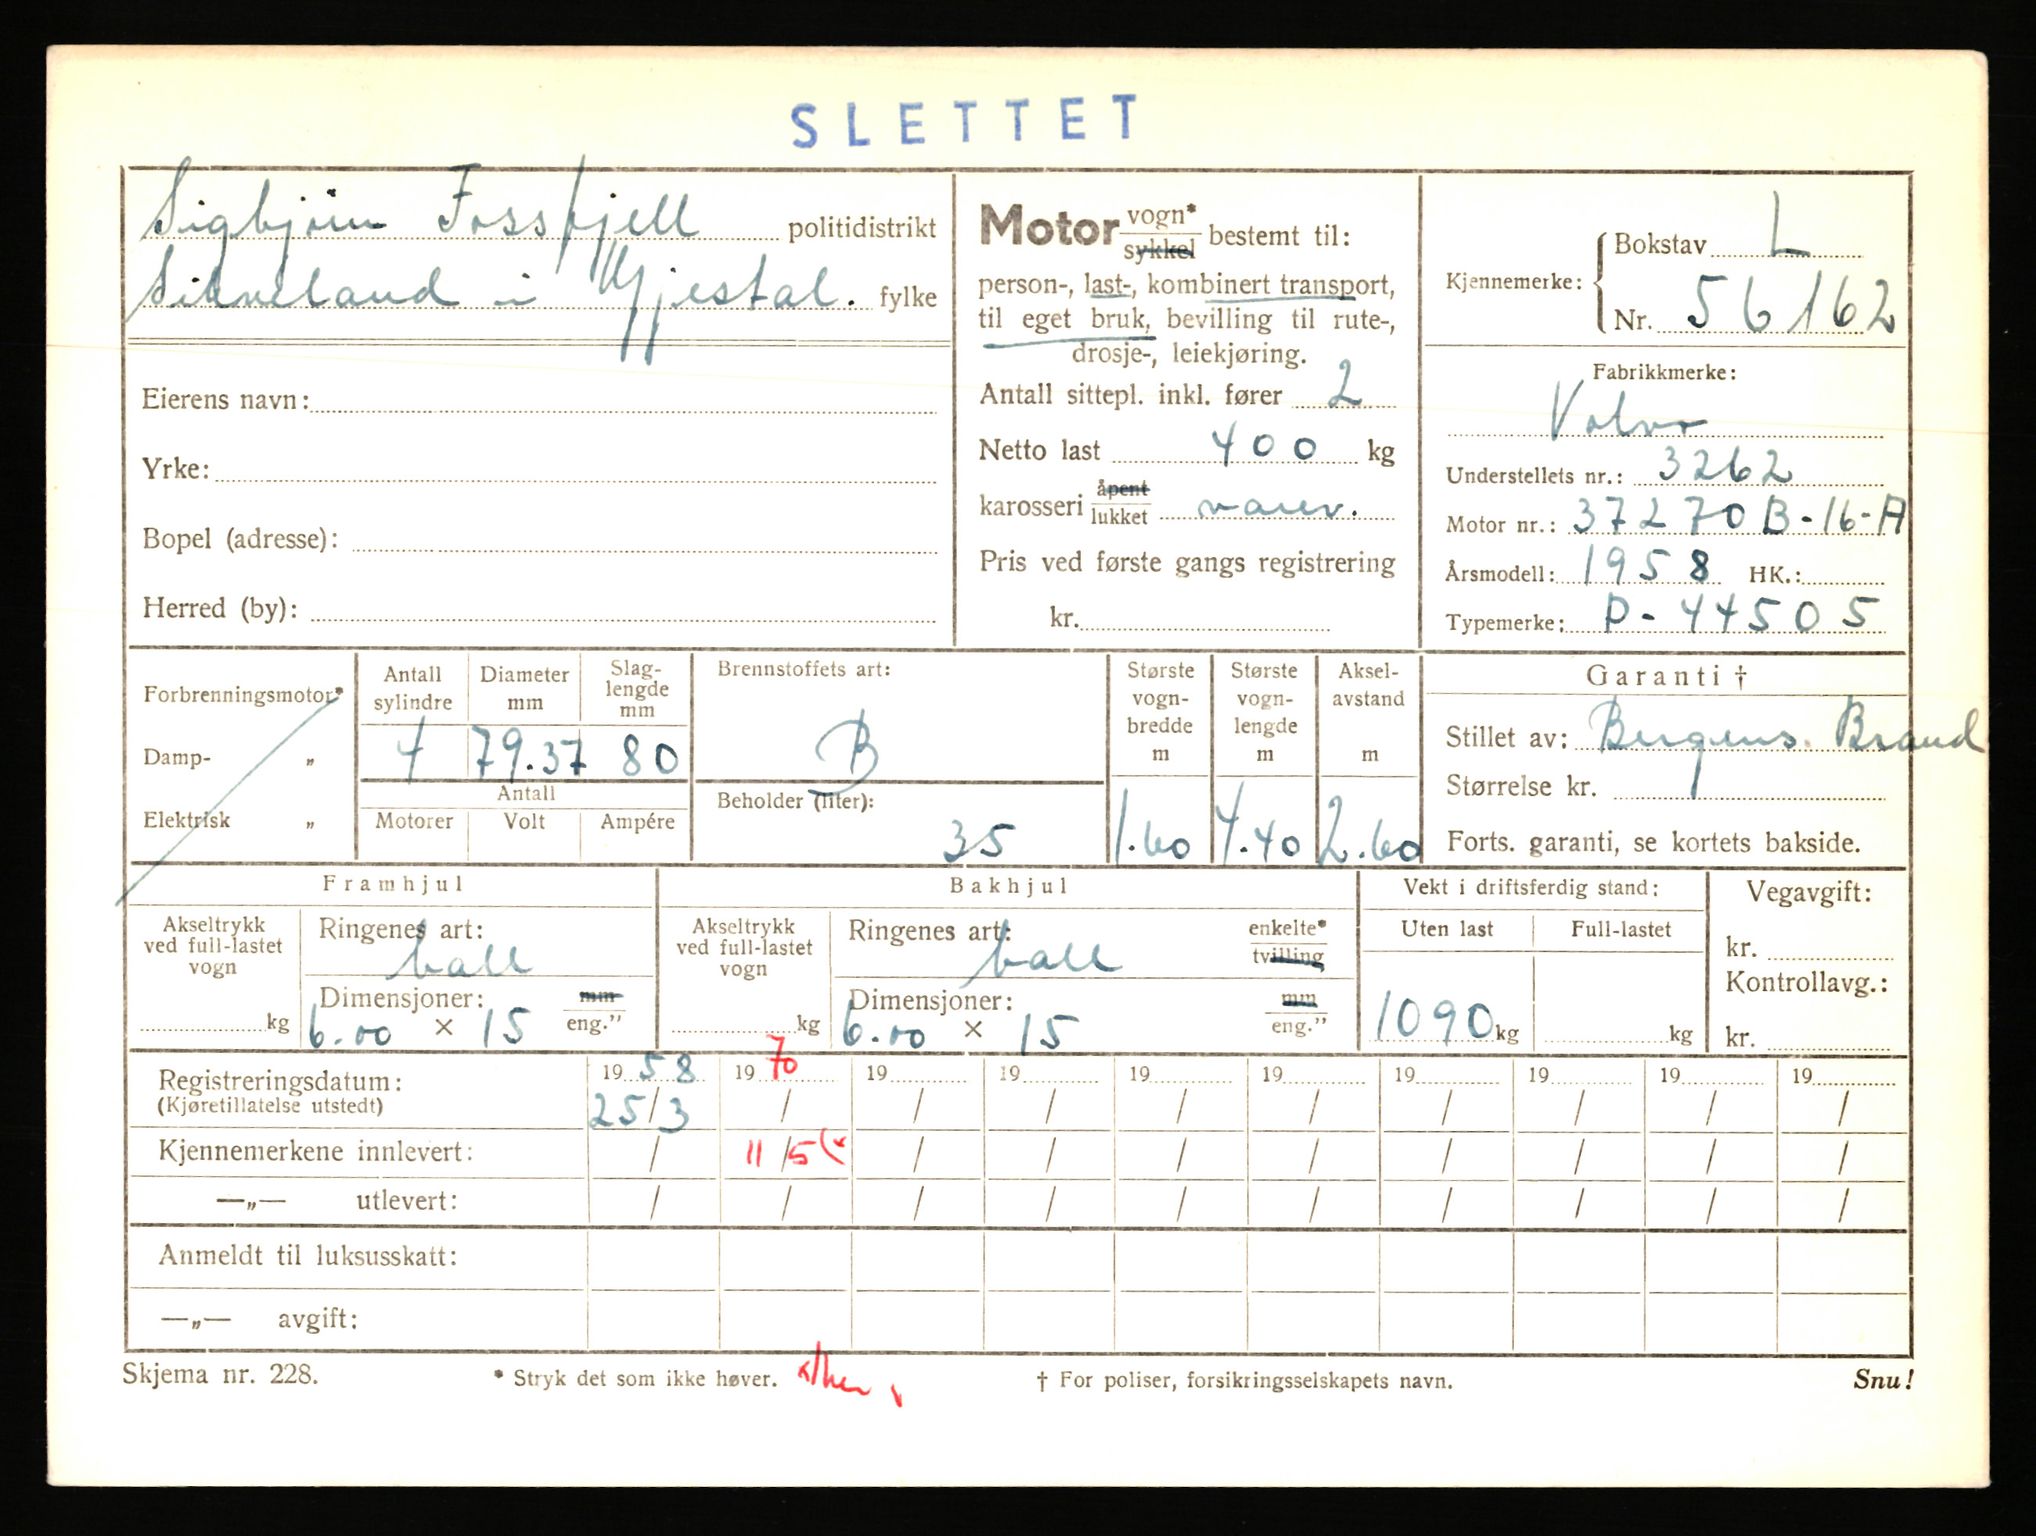 SLETTET
Sigbjörn Fossfjell politidistrikt
Sikveland i Gjestal. fylke
Eierens navn:
Yrke:
Bopel (adresse):
Herred (by):
Motor vogn* sykkel bestemt til:
person-, last-, kombinert transport,
til eget bruk, bevilling til rute-,
drosje-, leiekjøring.
Antall sittepl. inkl. fører 2
Netto last 400 kg
karosseri åpent lukket varev.
Pris ved første gangs registrering
kr.
Kjennemerke: Bokstav L
Nr. 56162
Fabrikkmerke:
Volvo
Understellets nr.: 3262
Motor nr.: 37270B-16-A
Årsmodell: 1958 HK.:
Typemerke: P-44505
Forbrenningsmotor*
Damp- „
Elektrisk „
Antall sylindre Diameter mm Slag-lengde mm
4 79.37 80
Antall
Motorer Volt Ampére
Brennstoffets art:
B
Beholder (liter):
35
Største vogn-bredde m
1.60
Største vogn-lengde m
4.40
Aksel-avstand m
2.60
Garanti †
Stillet av: Bergens Brand
Størrelse kr.
Forts. garanti, se kortets bakside.
Framhjul
Akseltrykk ved full-lastet vogn
kg
Ringenes art:
ball
Dimensjoner: mm
6.00 × 15 eng.”
Bakhjul
Akseltrykk ved full-lastet vogn
kg
Ringenes art: enkelte*
ball tvilling
Dimensjoner: mm
6.00 × 15 eng.”
Vekt i driftsferdig stand:
Uten last Full-lastet
1090 kg kg
Vegavgift:
kr.
Kontrollavg.:
kr.
Registreringsdatum: 1958 1970 19 19 19 19 19 19 19 19
(Kjøretillatelse utstedt) 25/3 / / / / / / / / /
Kjennemerkene innlevert: / 11/5 (x / / / / / / / /
—„— utlevert: / / / / / / / / / /
Anmeldt til luksusskatt:
—„— avgift:
Skjema nr. 228. * Stryk det som ikke høver. † For poliser, forsikringsselskapets navn. Snu!